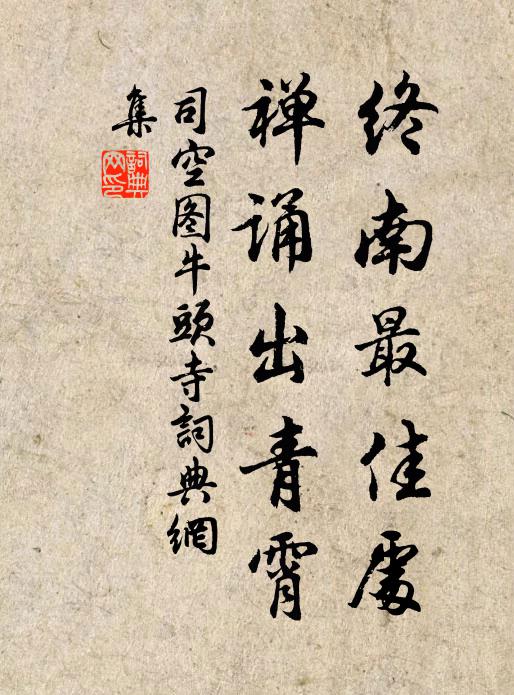 终南最佳處
禅诵出青霄
司空图牛頭寺詞典網
集
詞典網印